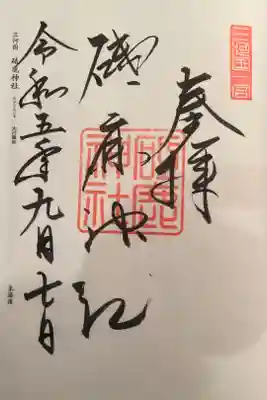 三河国一宮
奉拝
砥鹿神社
砥鹿神社
令和五年九月七日
三河国 砥鹿神社